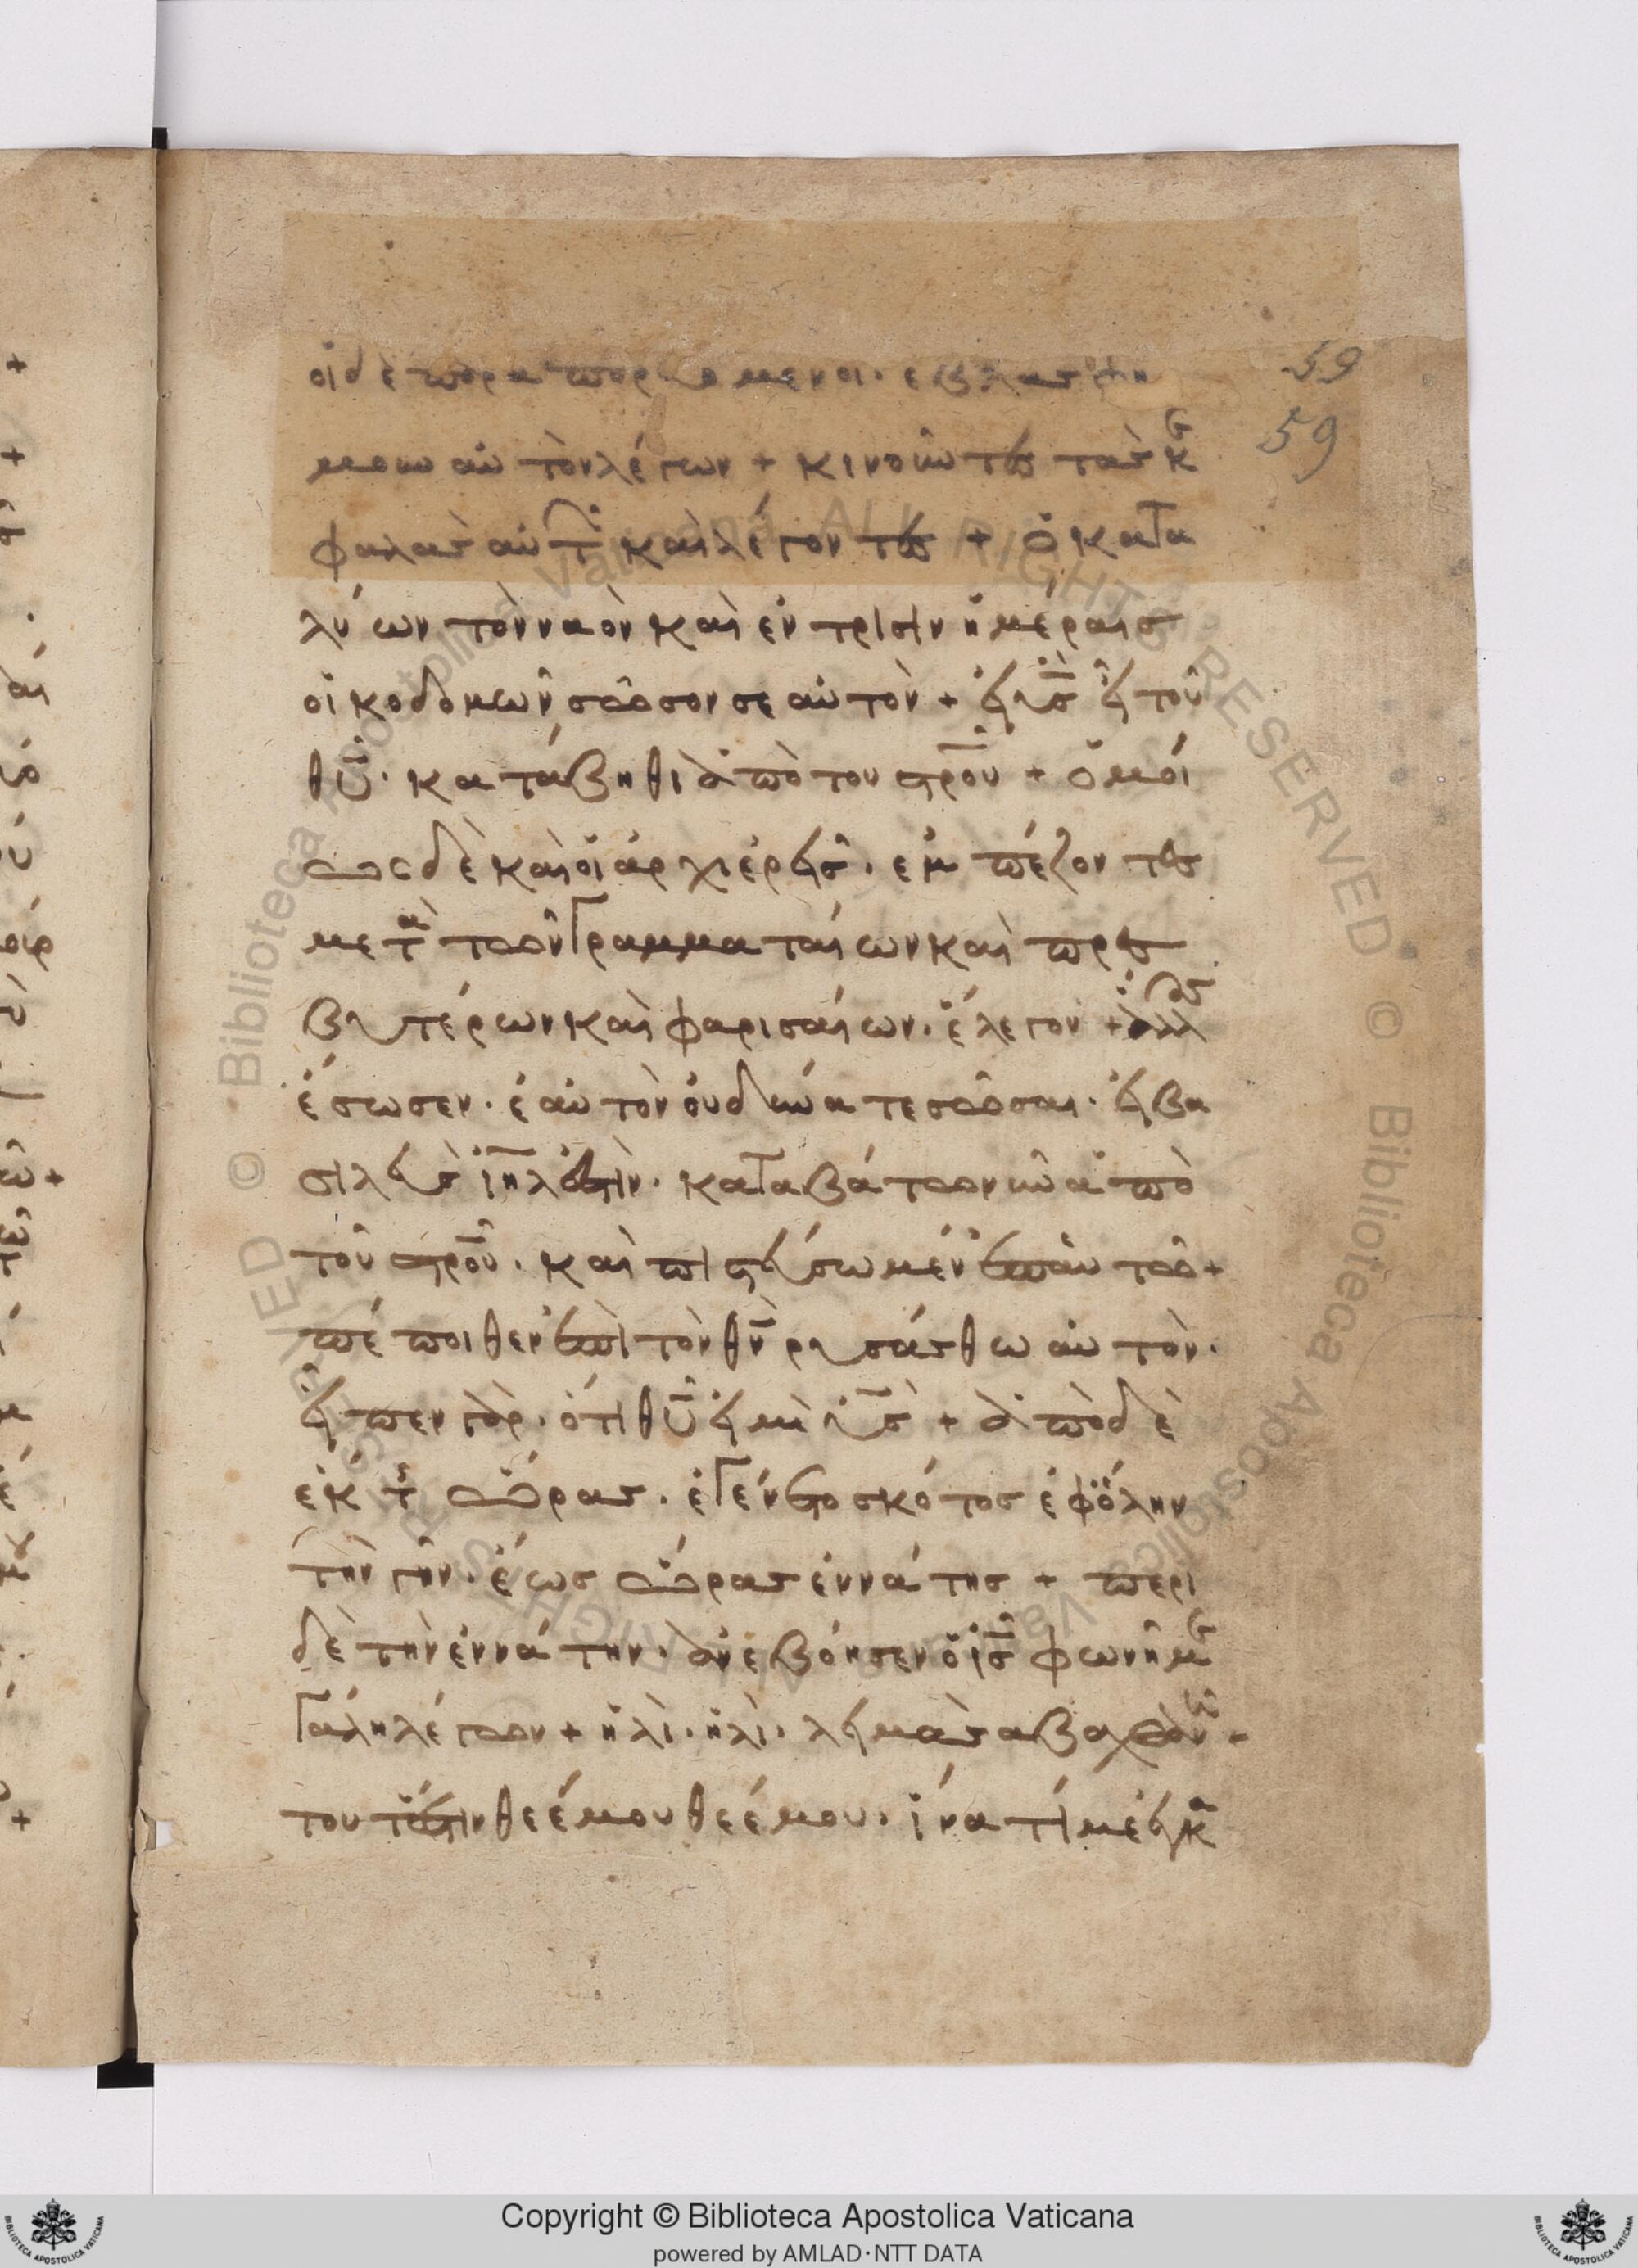 οἱ δὲ παραπορευόμενοι. εβλασφη
μουν αὐτὸν λέγων + κινοῦντες τὰς κε
φαλὰς αὐτῶν καὶ λέγοντες + ὁ κατα
λύων τὸν ναὸν καὶ ἐν τρισὶν ἡμέραις
οἰκοδομῶν σῶσον σεαὐτὸν + εἰ υς εἶ τοῦ
θυ. κατάβηθι ἀπὸ του στρου + ὁμοί
ως δὲ καὶ οἱ ἀρχιερεῖς. ἐμπέζοντες
μετὰ τῶν γραμματαίων καὶ πρεσ
βυτέρων καὶ φαρισαίων. ἔλεγον + ἄλλους
ἔσωσεν. ἑαὐτὸν οὐ δύνατε σῶσαι. εἰ βα
σιλεὺς ιηλ ἐστὶν. καταβάτω νῦν ἀπὸ
τοῦ στρου. καὶ πιστεύσωμεν ἐπ' αὐτῶ +
πέποιθεν ἐπὶ τὸν θν ρυσάσθω αὐτὸν.
εἶπεν γὰρ. ὅτι θυ εἰμὶ υς + ἀπὸ δὲ
ἕκτης ὥρας. ἐγένετο σκότος ἐφ' ὅλην
τὴν γῆν. ἕως ὥρας ἐννάτης + περι
δὲ τὴν ἐννάτην. ἀνεβόησεν ὁ ις φωνῆ με
γάλη λέγων + ἠλὶ. ἠλὶ. λειμὰ σαβαχθανεῖ +
τουτέστιν θεέ μου θεέ μου. ἵνα τί με ἐγκα
59
59
Copyright © Biblioteca Apostolica Vaticana
powered by AMLAD·NTT DATA